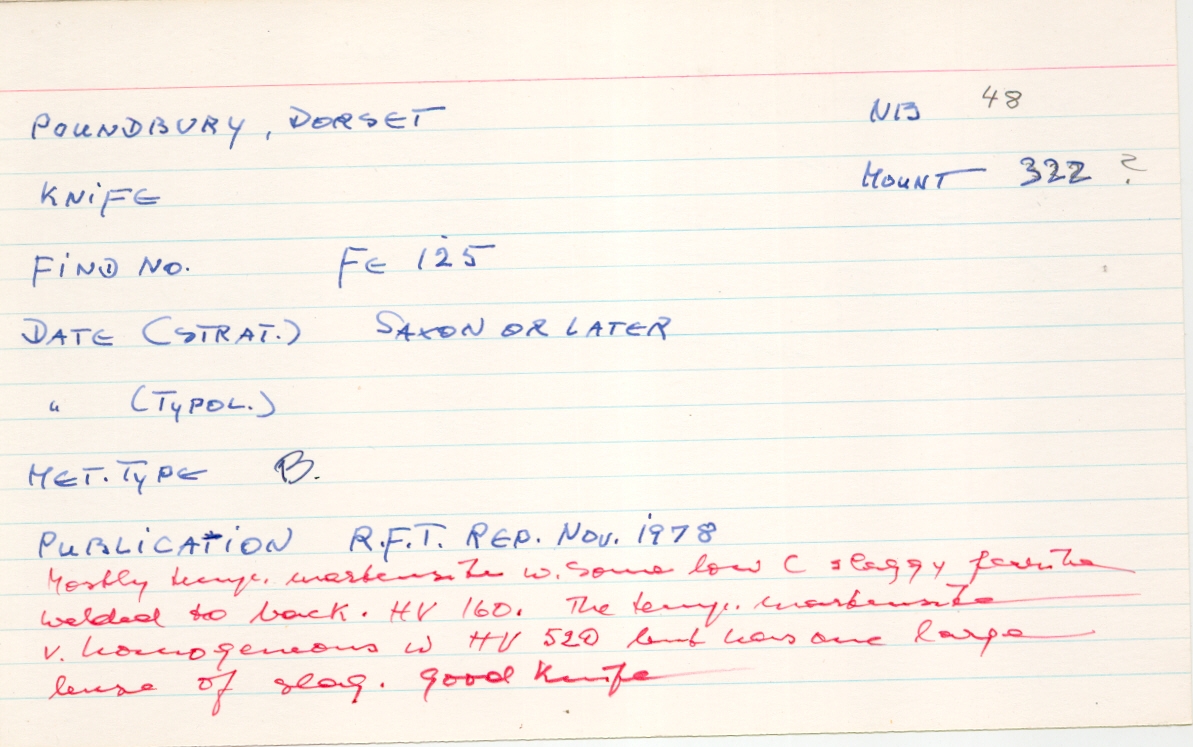 POUNDBURY, DORSET NB 48
KNiFE MOUNT 322 ?
FiND No. FE 125
DATE (STRAT.) SAXON OR LATER
" (TYPOL.)
MET. TYPE B.
PUBLICATiON R.F.T. REP. NOV. 1978
Mostly temp. martensite w. some low C slaggy ferrite
welded to back. HV 160. The temp. martensite
v. homogeneous w HV 520 but has one large
lense of slag. Good Knife